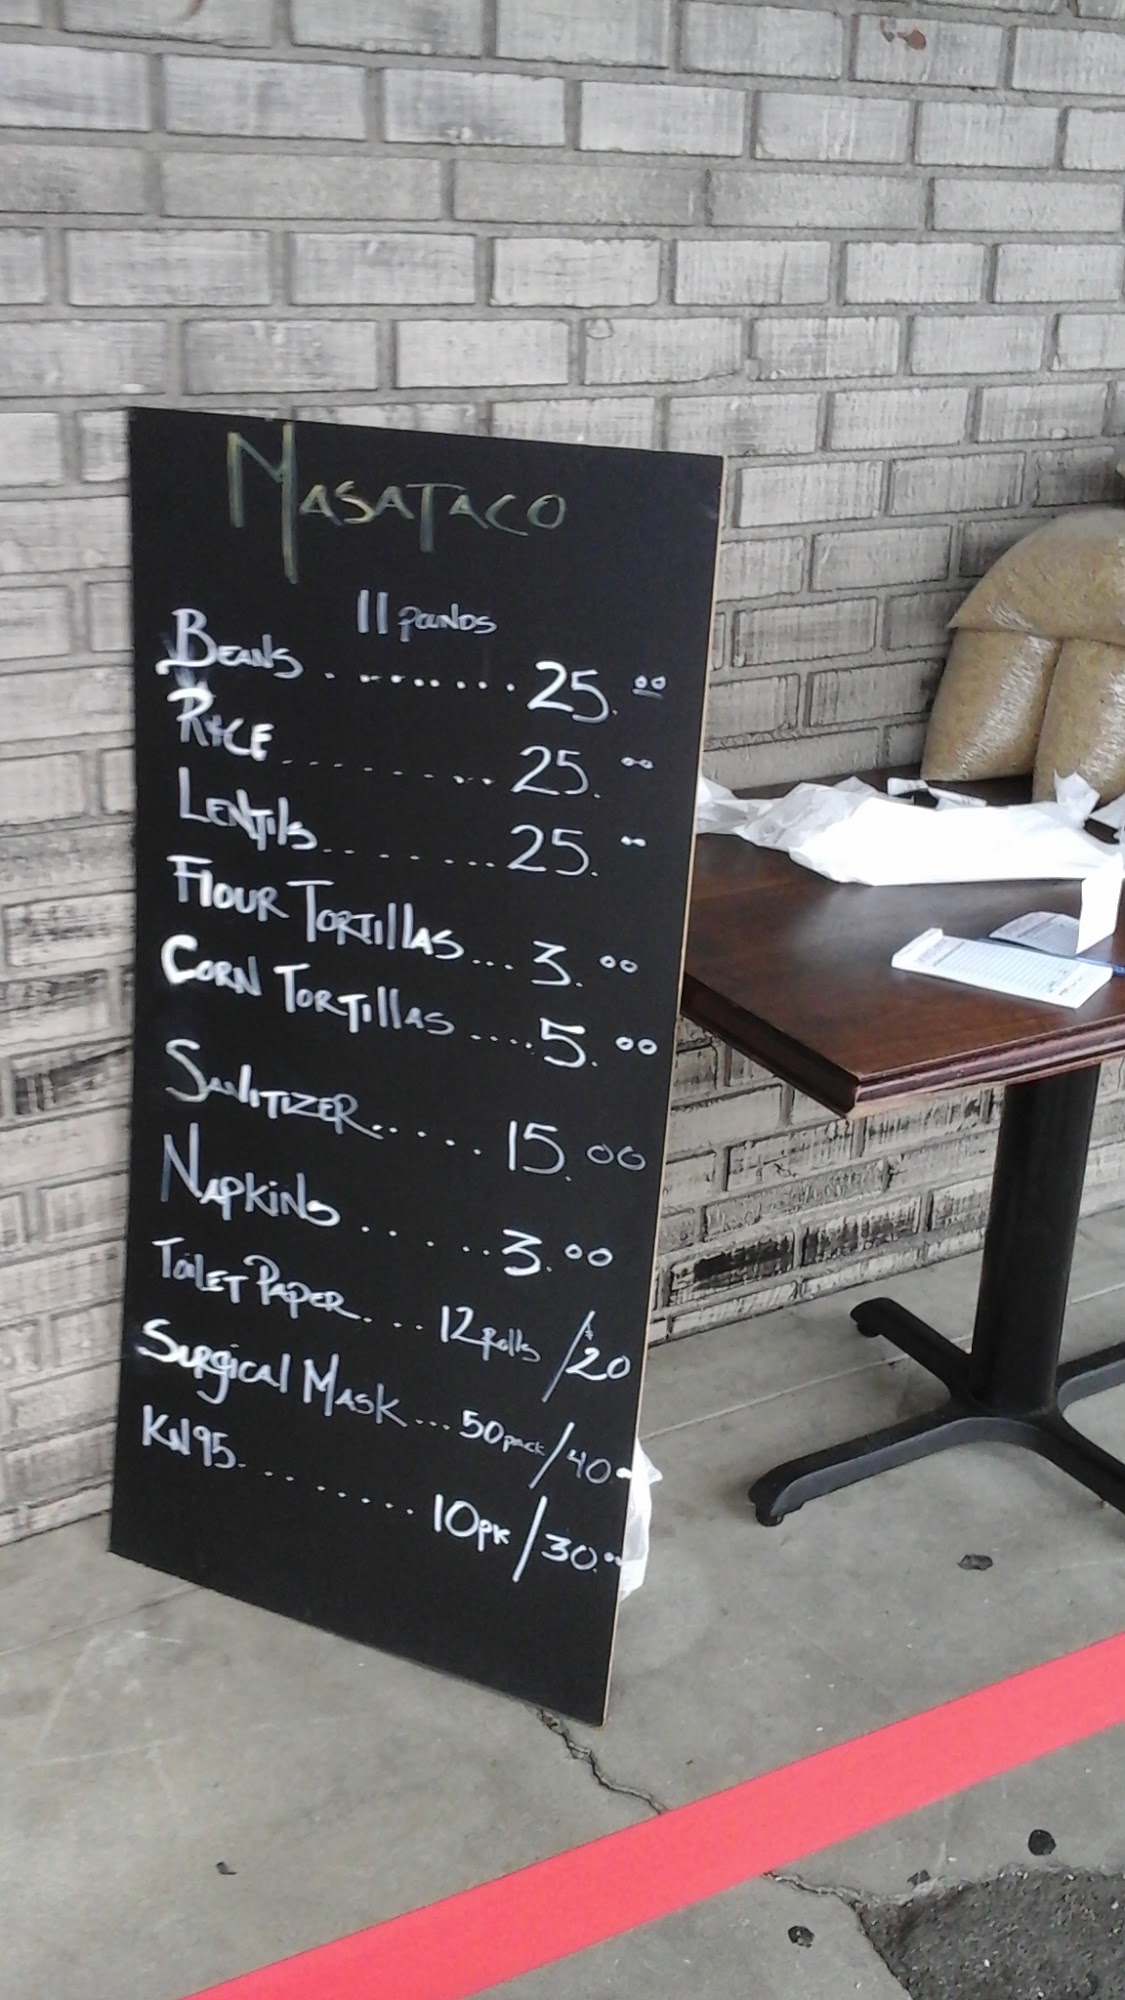 MASATACO
11 pounds
Beans . . . . . . . . . 25.00
Rice . . . . . . . . . 25.00
Lentils . . . . . . . . 25.00
Flour Tortillas . . . 3.00
Corn Tortillas . . . . 5.00
Sanitizer . . . . . 15.00
Napkins . . . . . . 3.00
Toilet Paper . . . 12 Rolls / $20
Surgical Mask . . . 50 pack / 40.-
KN95 . . . . . . . . . 10 pk / 30.00